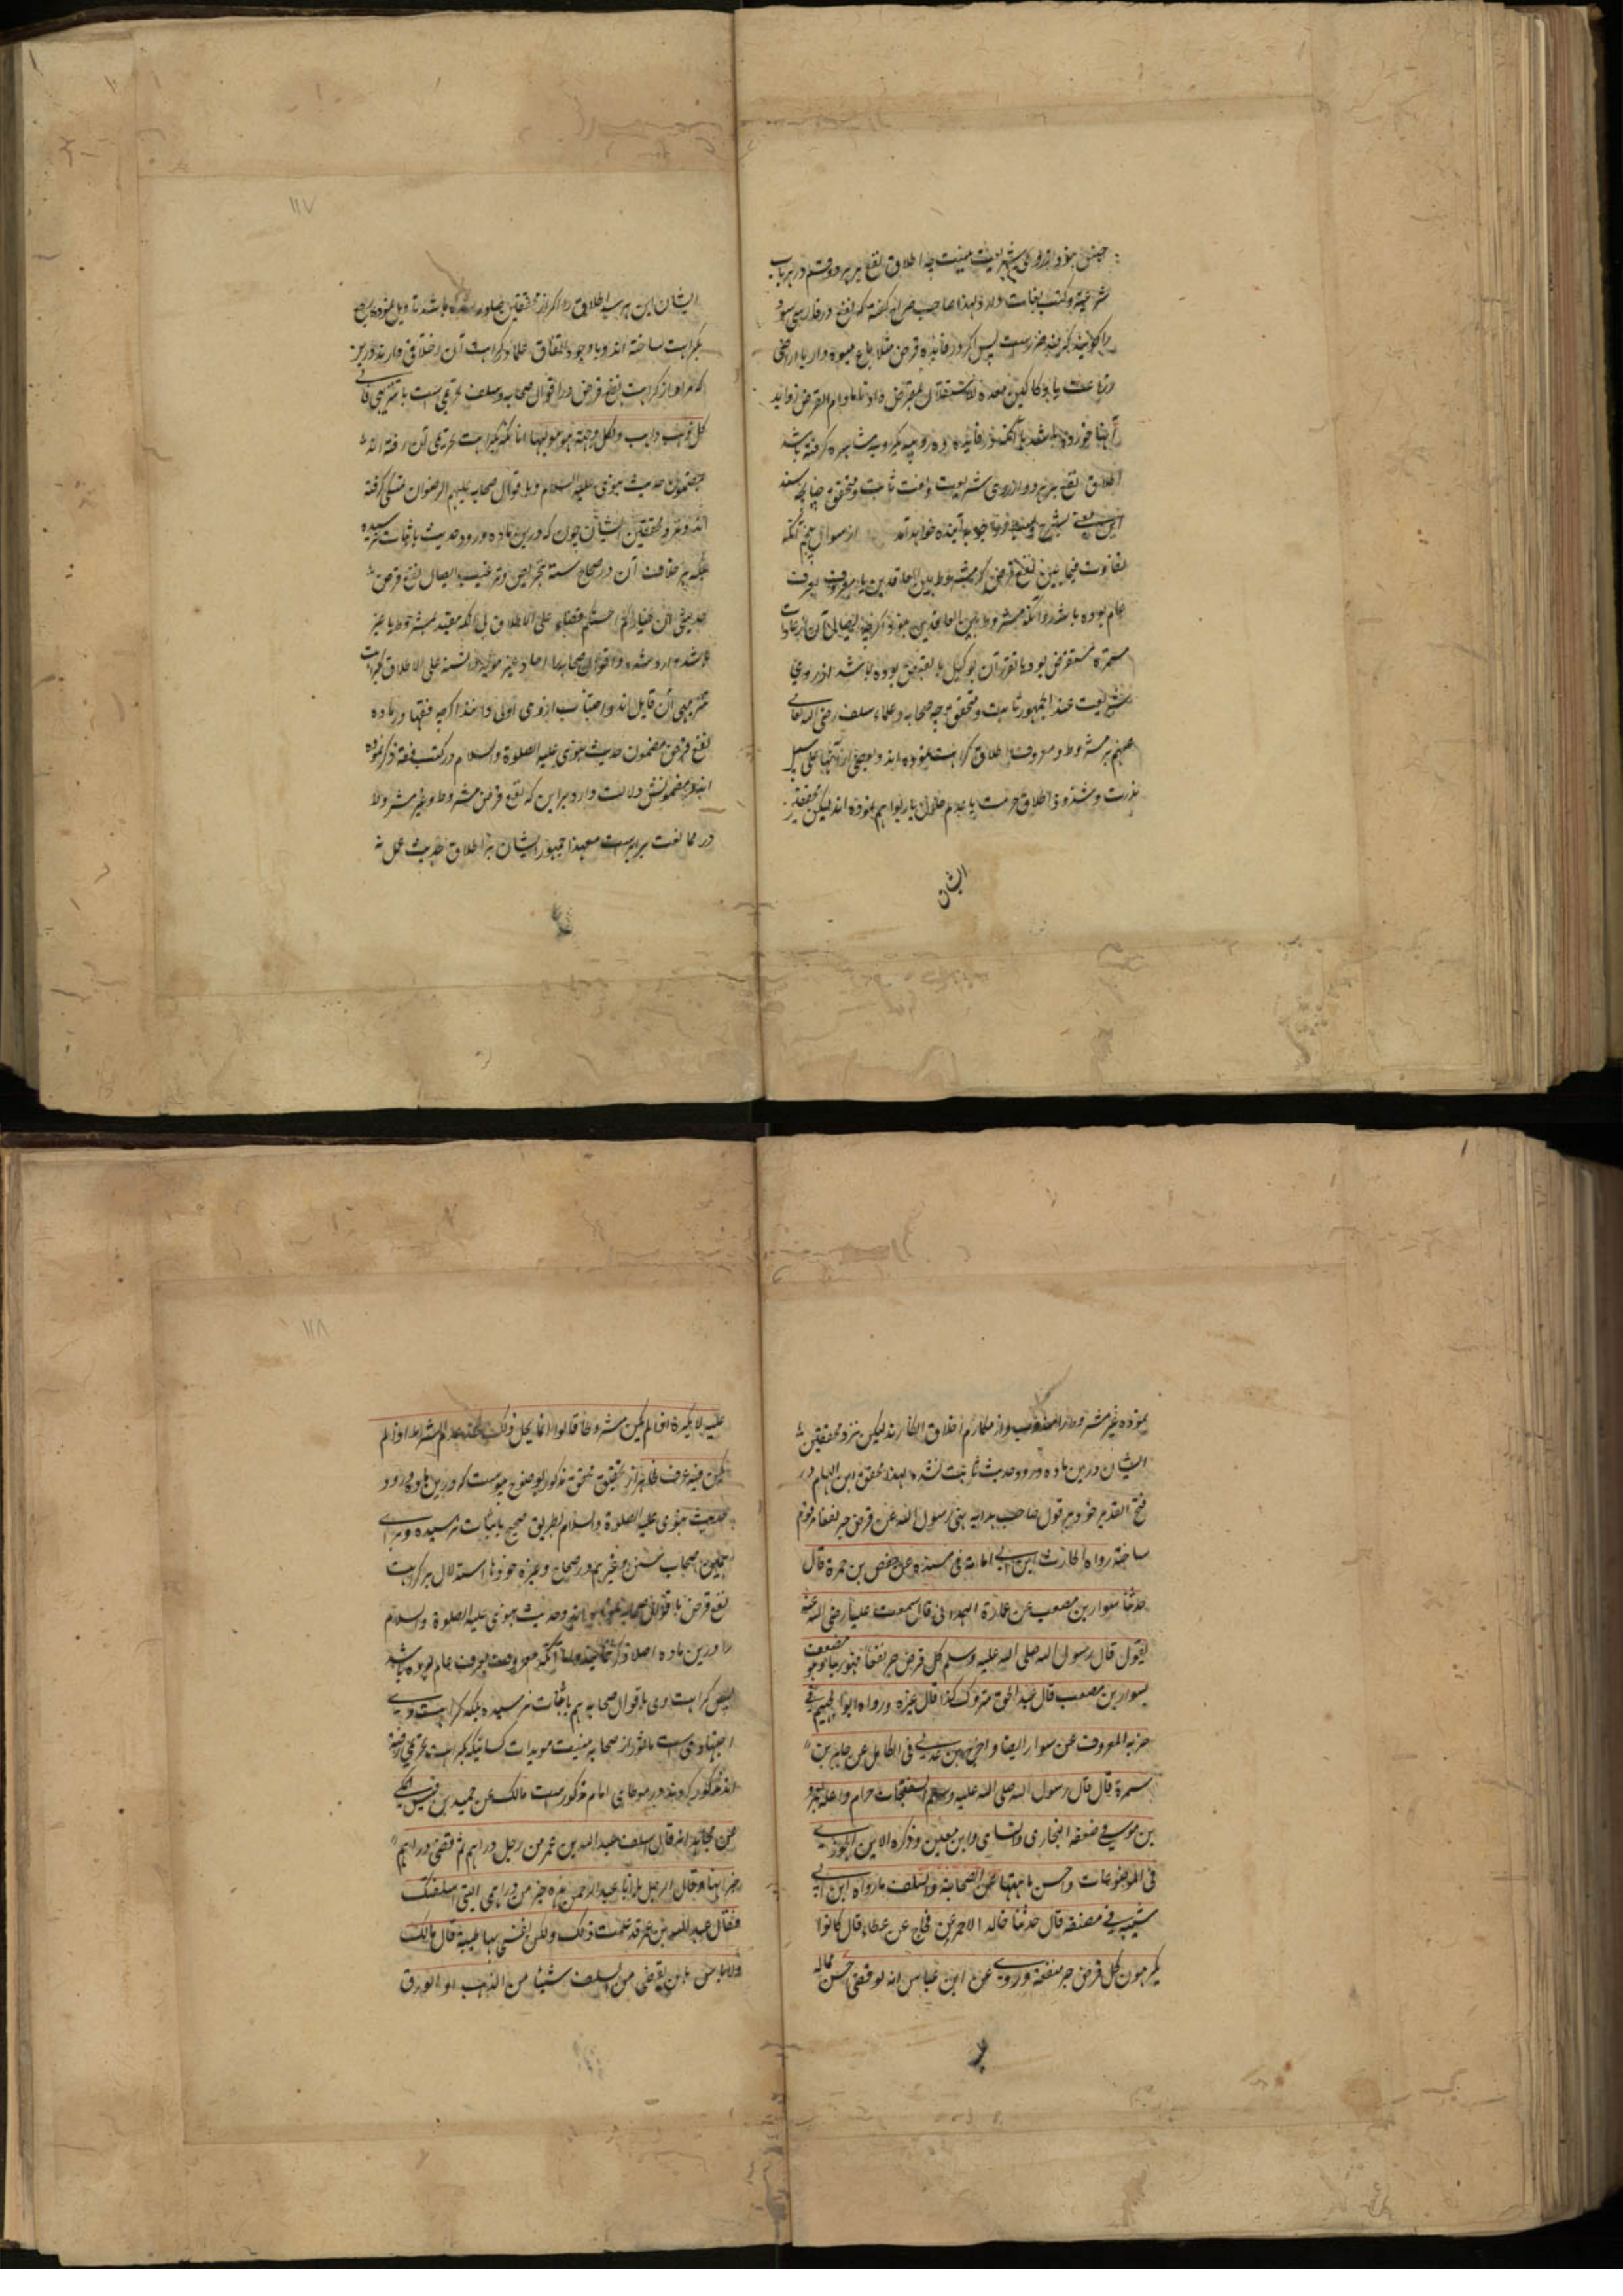 جنس بود از روی شریعت مبنیت چه اطلاق نفع بر هر دو قسم در هر باب
شرعیة و کتب لغات وارد لهذا صاحب صراح گفته که نفع در فارسی سود
را گویند که ضد ضررست پس اگر در فائده قرض مثلا باغ میوه دار یا اراضی
زراعت یا دکاکین معده للاستغلال بمقرض داد تا مادام القرض زواید
آنها خورده باشد یا آنکه در فائده ده روپیه یکروپیه مشاهره گرفته باشد
اطلاق نفع بر هر دو از روی شریعت و لغت ثابت و متحقق چنانچه سند
این معنی بشرح و بسط در جواب آینده خواهد آمد از سوال پنجم آنکه
تفاوت فیما بین نفع قرض که مشروط بین العاقدین یا معروف بعرف
عام بوده باشد و آنکه مشروط بین العاقدین نبود اگرچه ایصال آن از عادات
مستمره مستقرض بود یا تقرر آن بوکیل یا بغیر آن بوده باشد از روی
شریعت عند الجمهور ثابت و متحقق چه صحابه و علماء سلف رضی الله تعالی
عنهم بر مشروط و معروف اطلاق کراهت نموده اند و بعضی از آنها علی سبیل
ندرت و شذوذ اطلاق حرمت یا عدم حلال یا ربوا هم نموده اند لیکن محققین
ایشان
۱۱۷
ایشان این هر سه اطلاق را اگر از محققین صادر شده باشد تاویل نموده راجع
بکراهت ساخته اند و با وجود اتفاق علماء کراهت آن اختلاف دارند درین
که مراد از کراهت نفع قرض در اقوال صحابه و سلف تحریمی است یا تنزیهی
کل ذهب ذاهب ولکل وجهة هو مولیها اما آنکه بکراهت تحریمی آن رفته اند
بمضمون حدیث نبوی علیه السلام و یا باقوال صحابه علیهم الرضوان متمسک گرفته
اند و نزد محققین ایشان چون که درین ماده ورود حدیث باثبات نرسیده
بلکه بر خلاف آن در صحاح سته تحریص و ترغیب ایصال نفع قرض
حدیث ان خیارکم احسنکم قضاء علی الاطلاق بی آنکه مقید بمشروط یا غیر
باشد وارد شده و اقوال صحابه را احاد غیر مؤید دانسته علی الاطلاق بکراهت
تنزیهی آن قایل اند و اجتناب از وی اولی دانند اگرچه فقها درین ماده
نفع قرض مضمون حدیث نبوی علیه الصلوة والسلام در کتب فقه ذکر نموده
اند و مضمونش دلالت دارد بر این که نفع قرض مشروط و غیر مشروط
در ممانعت برابر است معهذا جمهور ایشان بر اطلاق حدیث عمل نه
نموده غیر مشروط را مندوب و از مکارم اخلاق انگارند لیکن نزد محققین
ایشان درین ماده ورود حدیث ثابت نشد لهذا محقق ابن الهمام در
فتح القدیر خود بر قول صاحب هدایه نهی رسول الله عن قرض جر نفعا مرقوم
ساخته رواه الحارث ابن ابی اسامة فی مسنده عن حفص بن حمزة قال
حدثنا سوار بن مصعب عن عمارة الهمدانی قال سمعت علیا رضی الله عنه
یقول قال رسول الله صلی الله علیه وسلم کل قرض جر نفعا فهو ربا وهو مضعف
بسوار بن مصعب قال عبد الحق متروک کذا قال غیره ورواه ابو الجهیم فی
جزیه المعروف عن سوار ایضا واخرج ابن عدی فی الکامل عن جابر بن
سمرة قال قال رسول الله صلی الله علیه وسلم السفتجات حرام واعله بعمرو
بن موسی ضعفه البخاری والنسائی وابن معین وذکره ابن الجوزی
فی الموضوعات واحسن ما هنا عن الصحابة والسلف ما رواه ابن ابی
شیبة فی مصنفه قال حدثنا خالد الاحمر عن حجاج عن عطاء قال کانوا
یکرهون کل قرض جر منفعة وروی عن ابن عباس انه لو قضی احسن مما له
۱۱۸
علیه لا یکره اذا لم یکن مشروطا قالوا انما یحل ذلک عند عدم الشرط اذا لم
یکن فیه عرف ظاهر از تحقیق محقق مذکور بوضوح پیوست که درین ماده ورود
حدیث نبوی علیه الصلوة والسلام بطریق صحیح باثبات نرسیده و برای
همین اصحاب سنن و غیرهم در صحاح و غیره خودها استدلال بر کراهت
نفع قرض باقوال صحابه نموده اند و حدیث نبوی علیه الصلوة والسلام
را درین ماده اصلا ذکر نساخته اند اما آنکه معروف بعرف عام بوده باشد
پس کراهت وی باقوال صحابه هم باثبات نرسیده بلکه کراهیت وی
اجتهادی است ماثور از صحابه نیست مویدات کسانیکه بکراهت تحریمی رفته
اند مذکور کردند در موطای امام مذکور است مالک عن حمید بن قیس المکی
عن مجاهد انه قال استلف عبد الله بن عمر من رجل دراهم ثم قضی دراهم
خیرا منها فقال الرجل یا ابا عبد الرحمن هذه خیر من دراهمی التی اسلفتک
فقال عبد الله بن عمر قد علمت ذلک ولکن نفسی بها طیبة قال مالک
ولا باس بان یقضی من اسلف شیئا من الذهب او الورق